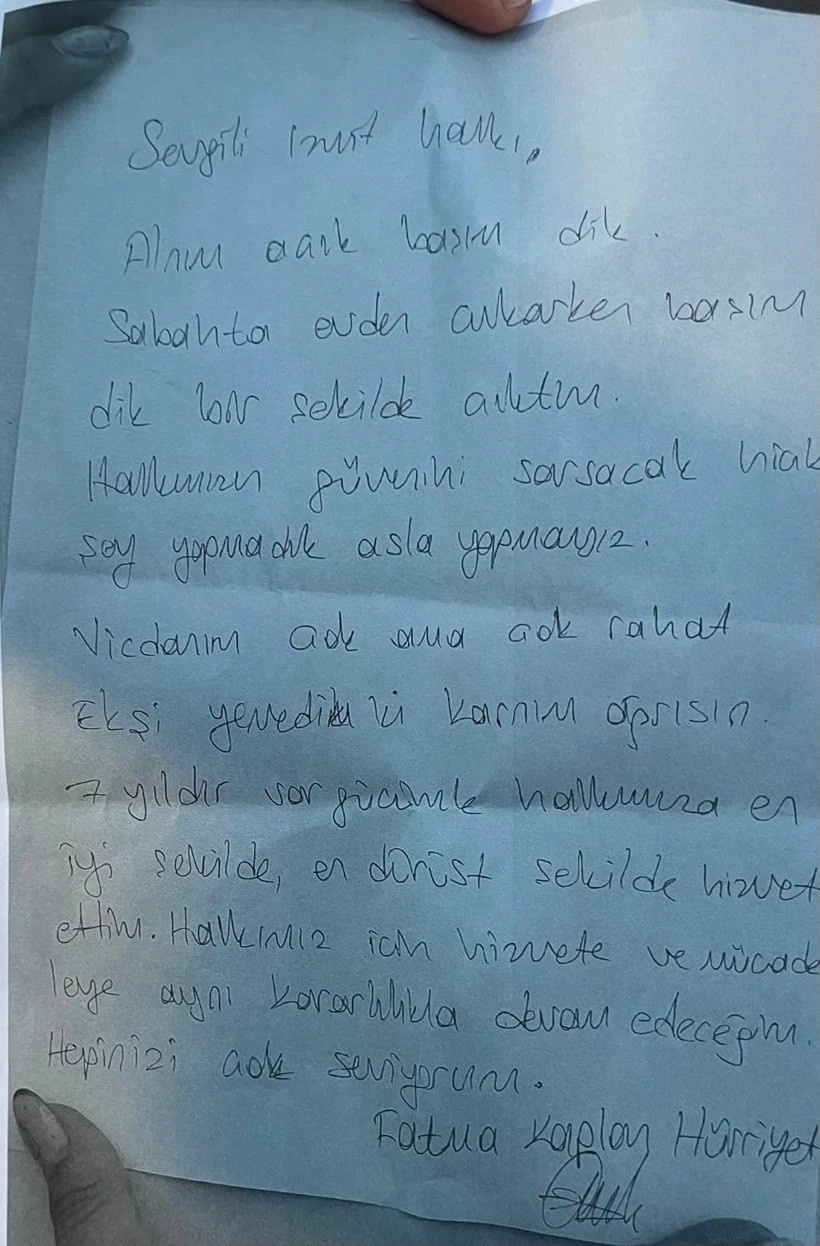 Sevgili İzmit halkı,
Alnım açık başım dik.
Sabahta evden çıkarken başım
dik bir şekilde çıktım.
Halkımızın güvenini sarsacak hiçbir
şey yapmadık asla yapmayız.
Vicdanım çok ama çok rahat
Ekşi yemedim ki karnım ağrısın.
7 yıldır var gücümle halkımıza en
iyi şekilde, en dürüst şekilde hizmet
ettim. Halkımız için hizmete ve mücade
leye aynı kararlılıkla devam edeceğim.
Hepinizi çok seviyorum.
Fatma Kaplan Hürriyet